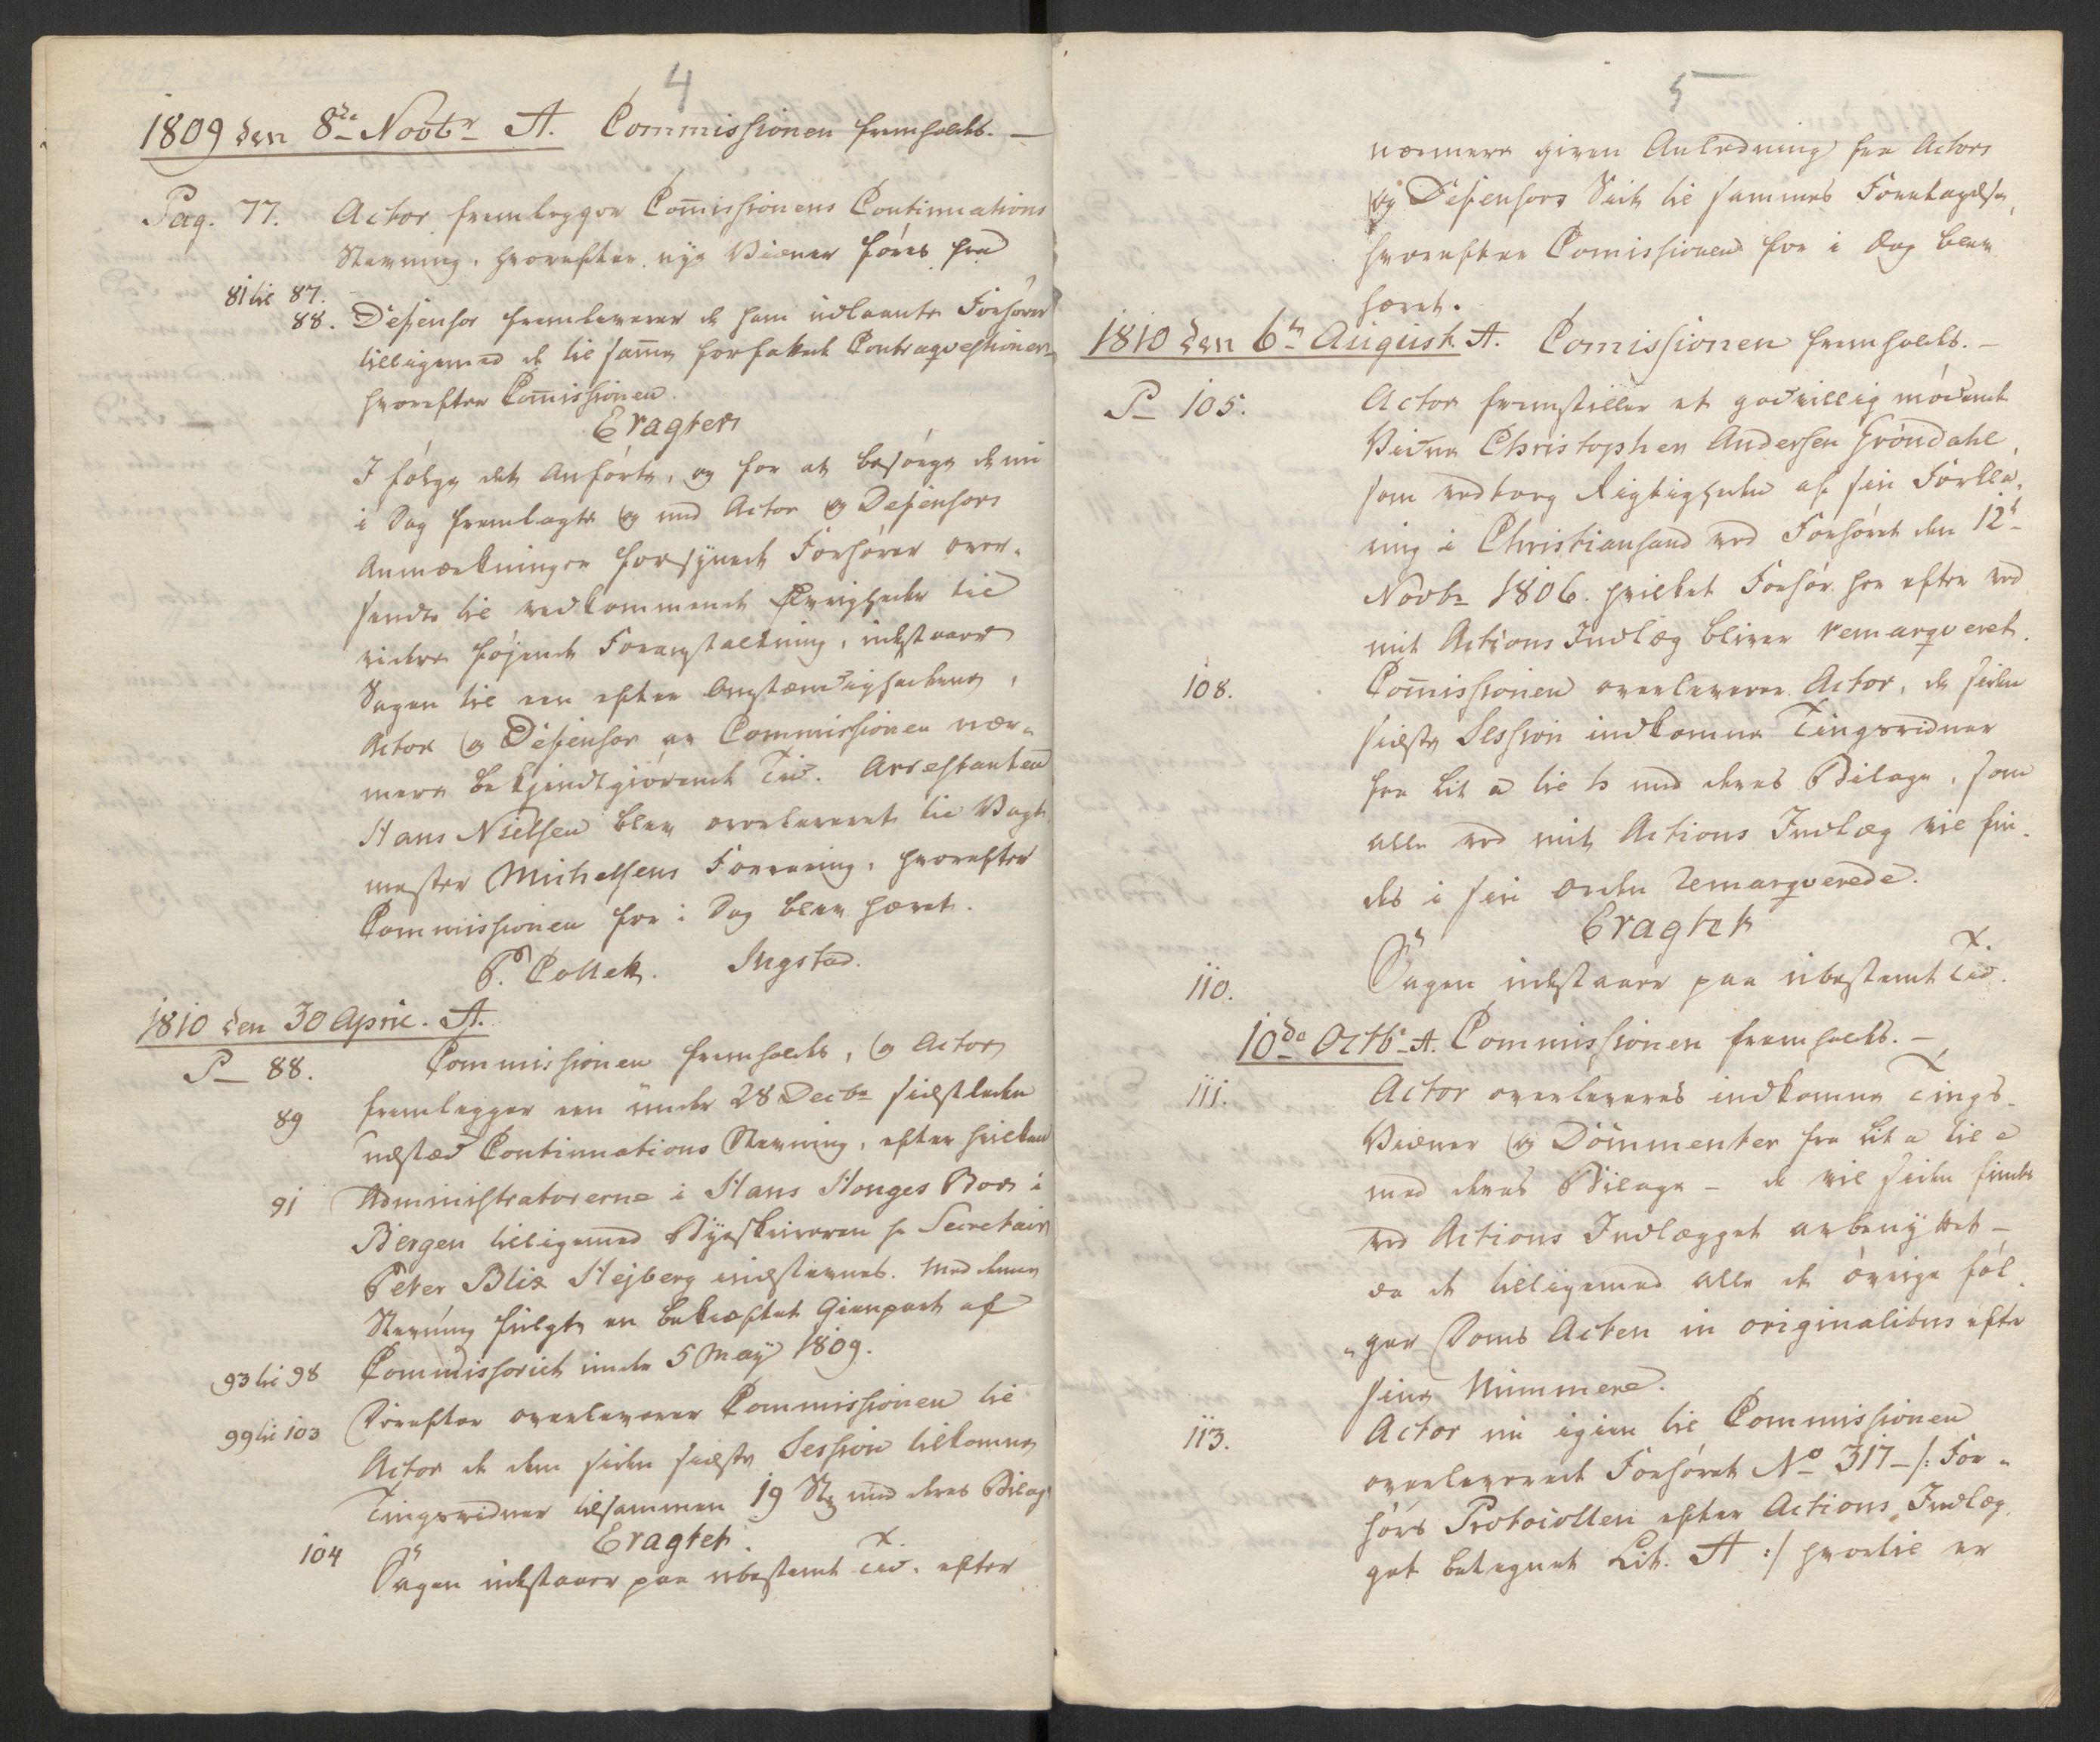 4
1809 den 8de Novbr A. Commissionen fremholdt. —
Pag. 77. Actor fremlegger Com̅issionens Continuations
Stevning, hvorefter nye Vidner føres fra
81 til 87.
88. Defensor fremleverer de ham udlaante Forhører
tilligemed de til sam̅e forfattede Contraqvestioner
hvorefter Com̅issionen
Eragter
I følge det Anførte, og for at besørge de nu
i Dag fremlagte og med Actor og Defensors
Anmærkninger forsynede Forhører over-
sendt til vedkommende Øvrigheder til
videre føjende Foranstaltning, udstaaer
Sagen til een efter Omstændighederne,
Actor og Defensor av Commissionen nær-
mere bekjendtgiørende Tid. Arrestanten
Hans Nielsen blev overleveret til Vagt-
mester Michelsens Forvaring, hvorefter
Commissionen for i Dag blev hævet.
P. Collett. Ingstad.
1810 den 30 April. A.
P— 88. Commissionen fremholdt, og Actor
89 fremlegger een under 28 Decbr sidstleden
udstæd Continuations Stevning, efter hvilken
91 Administratorerne i Hans Honges Boe i
Bergen tilligemed Byeskriveren hr Secretair
Peter Blix Hejberg indstevnes. Med denne
Stevning fulgte en bekræftet Gienpart af
93 til 98 Commissoriet under 5 May 1809.
99 til 103 Derefter overleverer Commissionen til
Actor de dem siden sidste Session tilkomne
Tingsvidner tilsammen 19 St med deres Bilage
Eragtet.
104 Sagen udstaaer paa ubestemt Tid. efter
5
nærmere given Anledning fra Actors
og Defensors Side til sammes Foretagelse,
hvorefter Comissionen for i Dag blev
hævet.
1810 den 6te August. A. Comissionen fremholdt. —
P— 105. Actor fremstiller et godvillig mødende
Vidne Christopher Andersen Grøndahl
som vedtog Rigtigheden af sin Forkla-
ring i Christiansand ved Forhøret den 12te
Novbr 1806. hvilket Forhør her efter ved
mit Actions Indlæg bliver remarqveret.
108. Com̅issionen overleverer Actor, de siden
sidste Session indkomne Tingsvidner
fra Lit a til h med deres Bilage, som
alle ved mit Actions Indlæg vil fin-
des i sin Orden remarqverede.
Eragtet
110. Sagen udstaaer paa ubestemt Tid.
10de Octbr A. Commissionen fremholdt. —
111. Actor overleveres indkomne Tings-
Vidner og Documenter fra Lit a til e
med deres Bilage — de vil siden findes
ved Actions Indlægget avbenyttet —
da de tilligemed alle de øvrige føl-
ger Doms Acten in originalibus efter
sine Nummere.
113. Actor nu igien til Commissionen
overleverede Forhøret No 317 — /: For-
hørs Protocollen efter Actions Indlæg-
get betegnet Lit. A :/ hvortil er